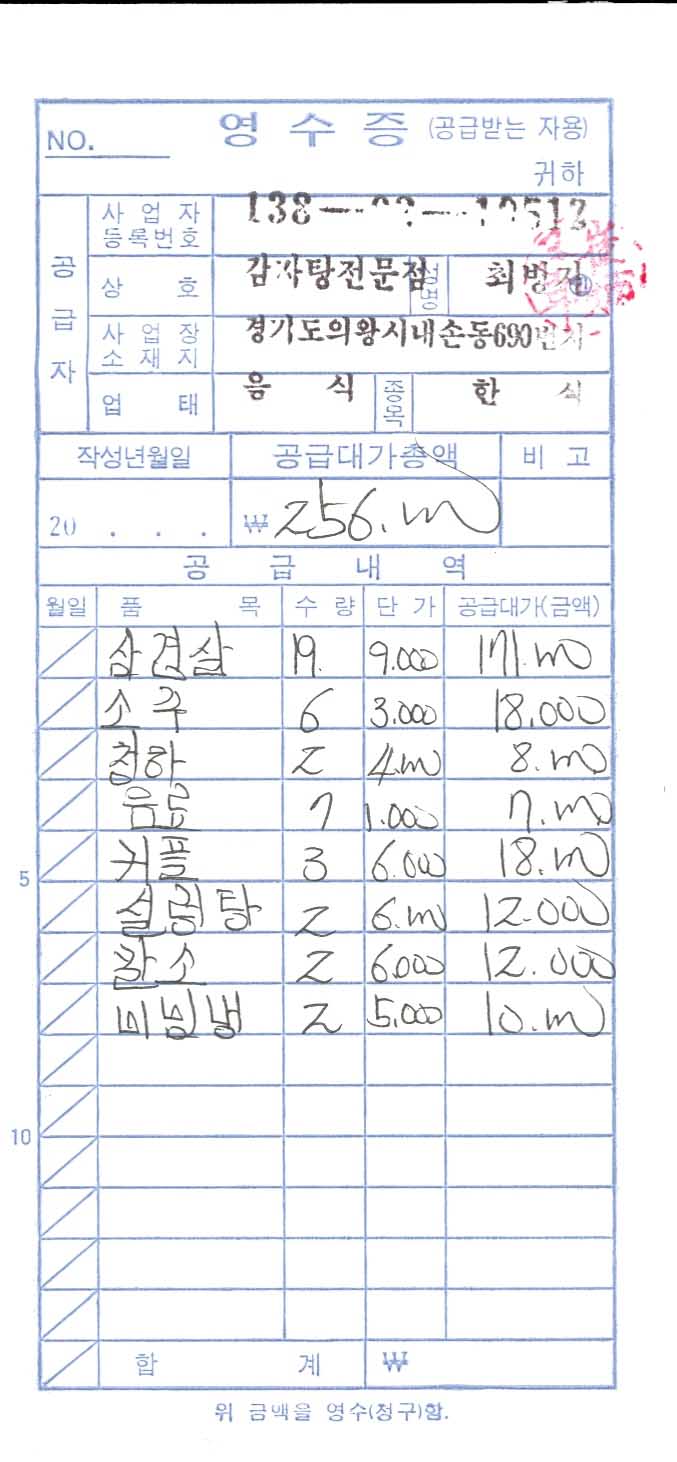 NO. 영수증 (공급받는 자용)
귀하
공급자
사업자등록번호 138-
상호 감자탕전문점 성명
사업장소재지 경기도의왕시내손동690번지
업태 음식 종목 한식
작성년월일 공급대가총액 비고
20 . . . ₩ 256.000
공급내역
월일 품목 수량 단가 공급대가(금액)
삼겹살 19. 9.000 171.000
소주 6 3.000 18.000
청하 2 4.000 8.000
음료 7 1.000 7.000
5 커플 3 6.000 18.000
설렁탕 2 6.000 12.000
2 6.000 12.000
비빔냉 2 5.000 10.000
10
합계 ₩
위 금액을 영수(청구)함.